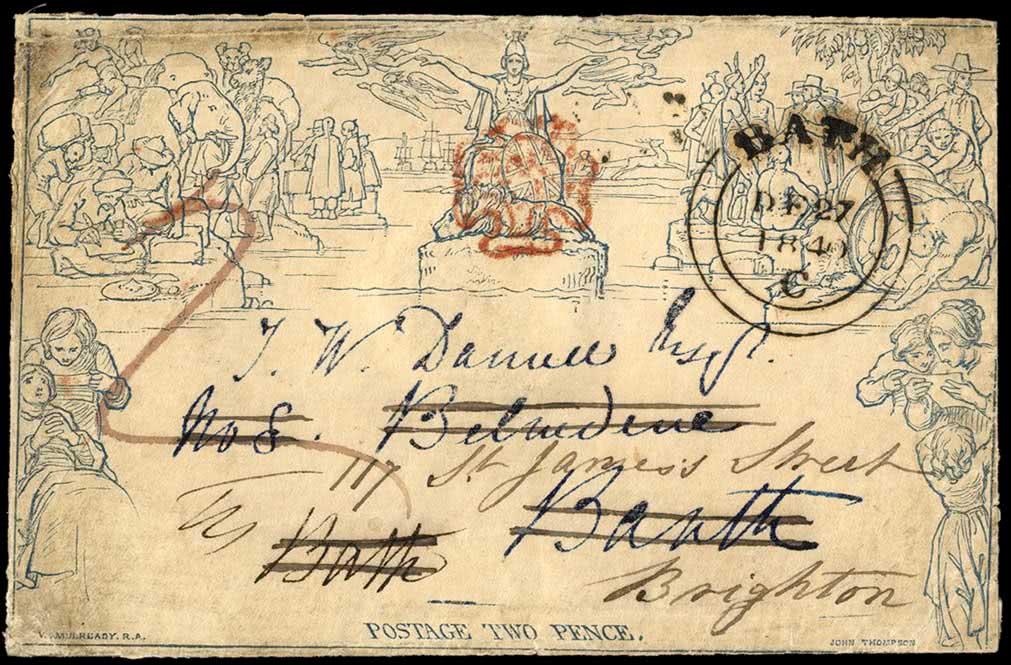 BATH
DE 27
1840
C
J. W. Darnell Esqr.
No 8. Belvedere
117 St James's Street
Bath
Bath
Brighton
POSTAGE TWO PENCE.
W. MULREADY. R.A.
JOHN THOMPSON